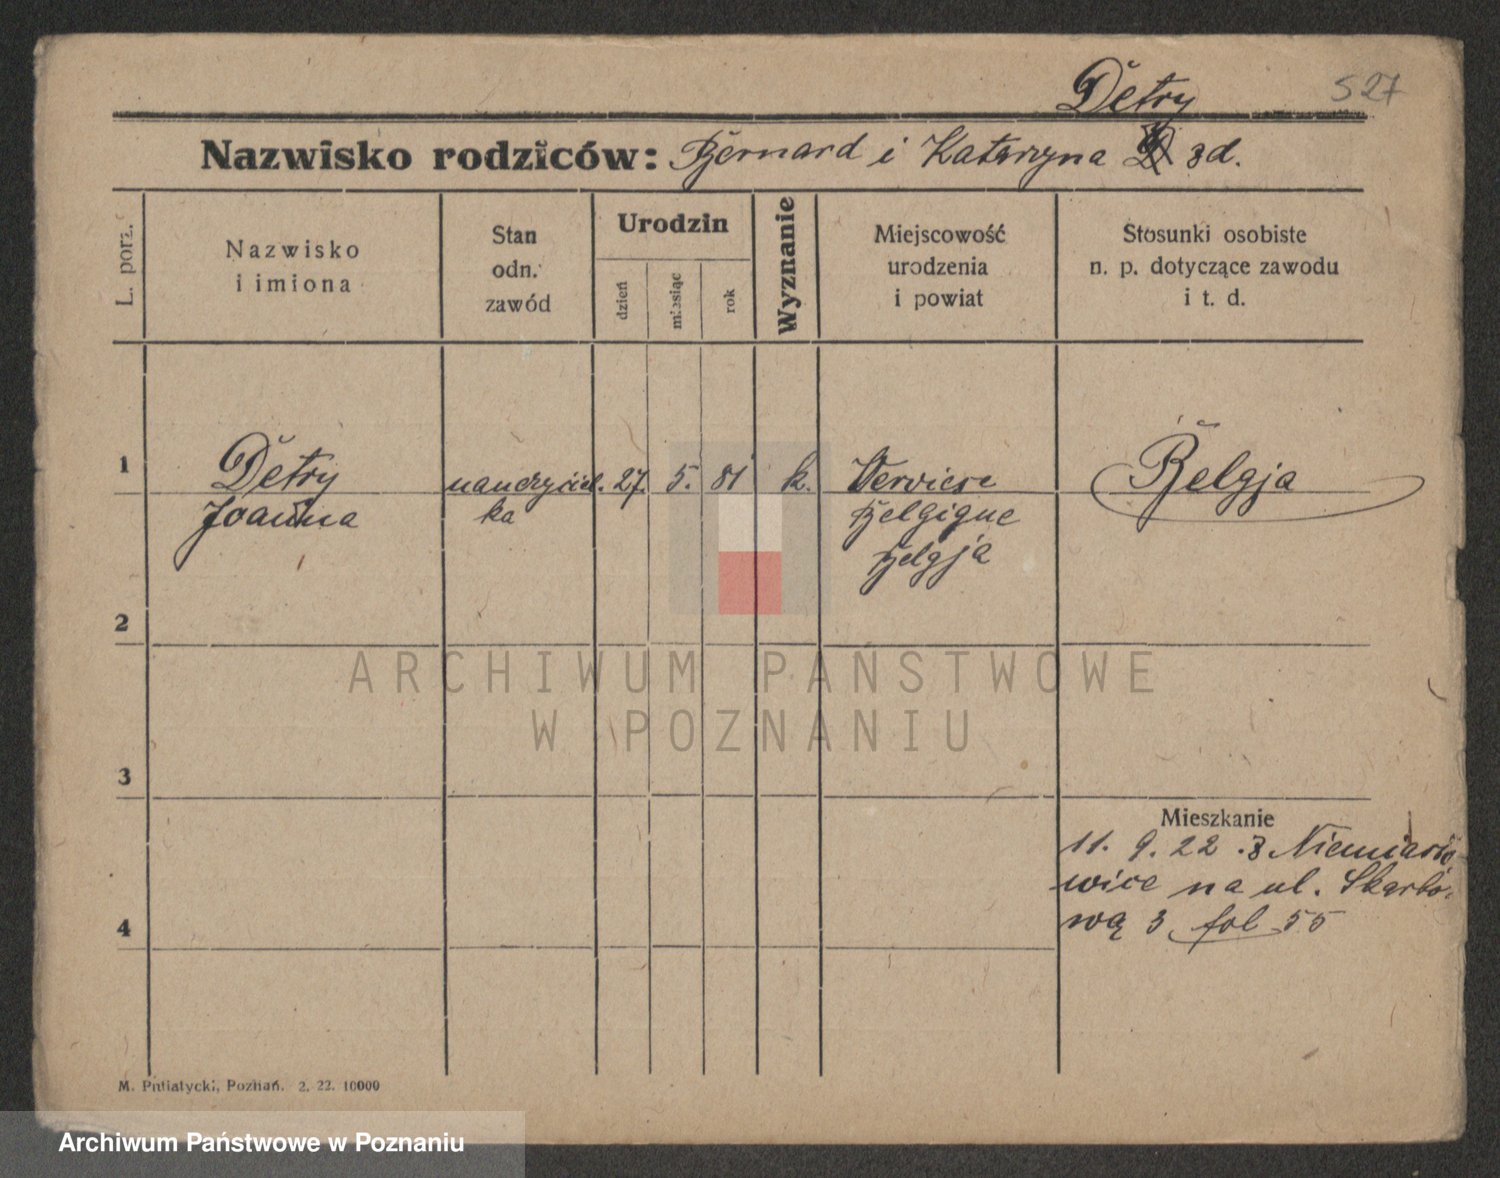 Detry
527
Nazwisko rodziców: Bernard i Katarzyna zd.
L. porz.
Nazwisko
i imiona
Stan
odn.
zawód
Urodzin
dzień
miesiąc
rok
Wyznanie
Miejscowość
urodzenia
i powiat
Stosunki osobiste
n. p. dotyczące zawodu
i t. d.
1
Detry
Joanna
nauczyciel.
ka
27. 5. 81
k.
Belgique
Belgja
Belgja
2
ARCHIWUM PAŃSTWOWE
W POZNANIU
3
Mieszkanie
11. 9. 22 .z
wice na ul. Skarbo-
wą 3 fol 55
4
M. Putiatycki, Poznań. 2. 22. 10000
Archiwum Państwowe w Poznaniu